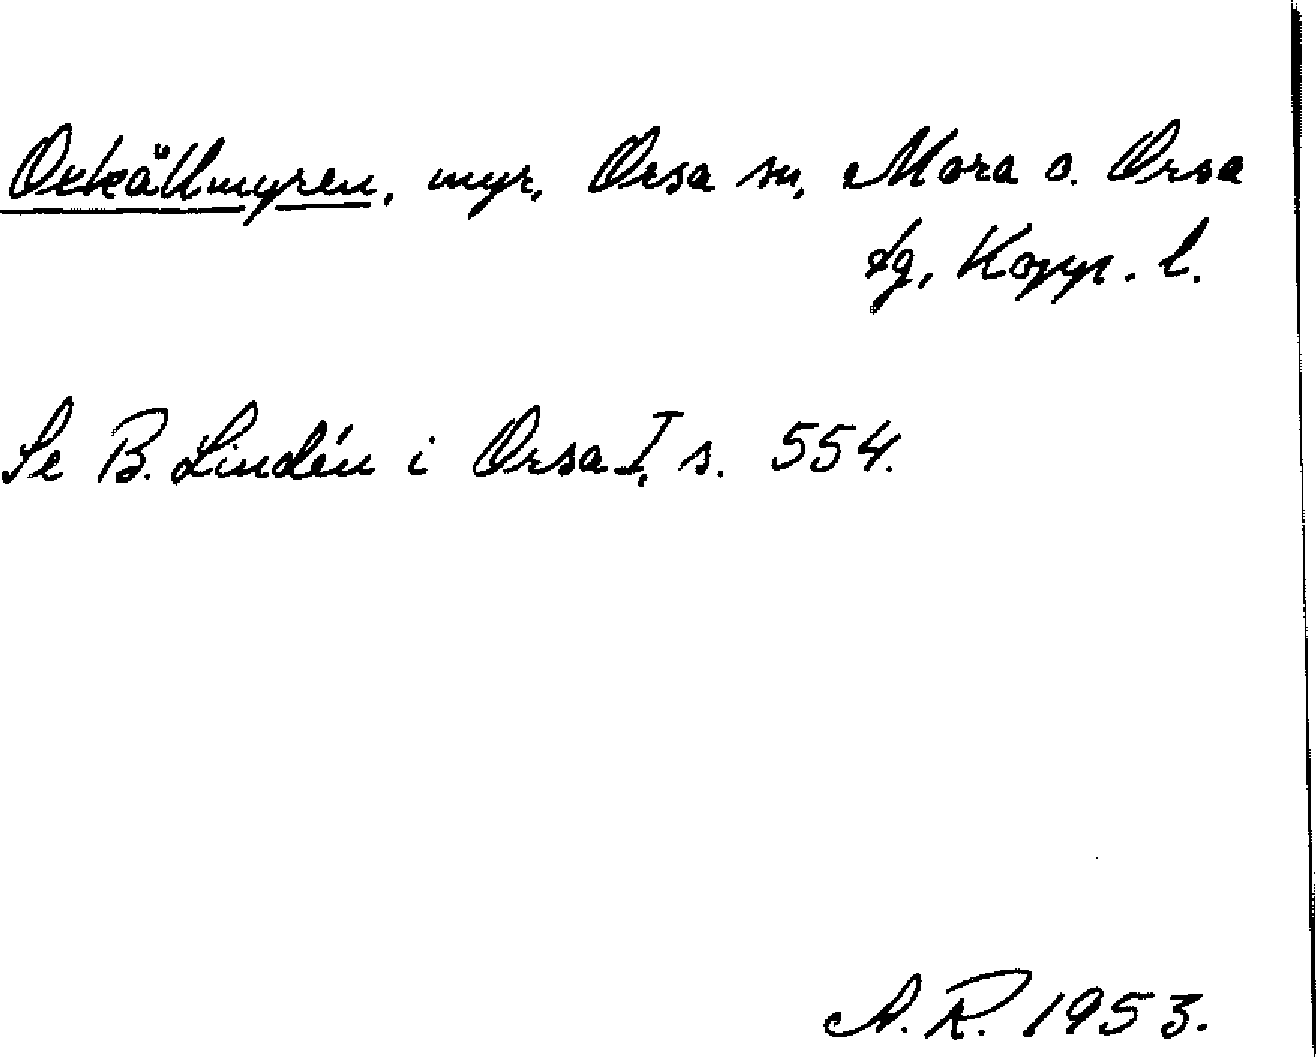 Orkällmyren, myr, Orsa sn, Mora o. Orsa
tg, Kopp. l.
Se B. Lindén i Orsa I, s. 554.
A. R. 1953.